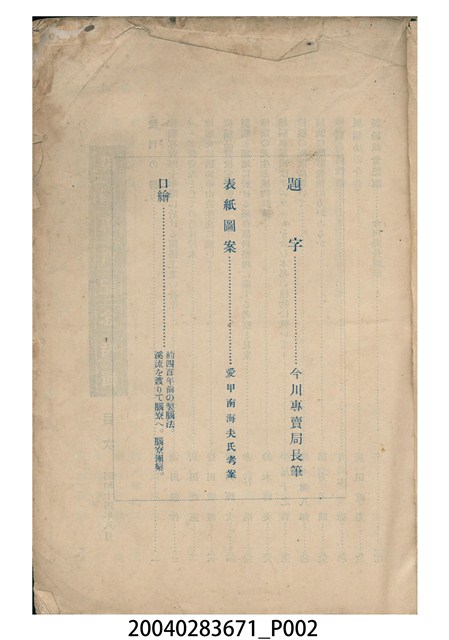 題字……………………今川專賣局長筆
表紙圖案……………………愛甲南海夫氏考案
口繪……………………約四百年前の製腦法。
溪流を渡りて腦寮へ。腦寮團欒。
20040283671_P002